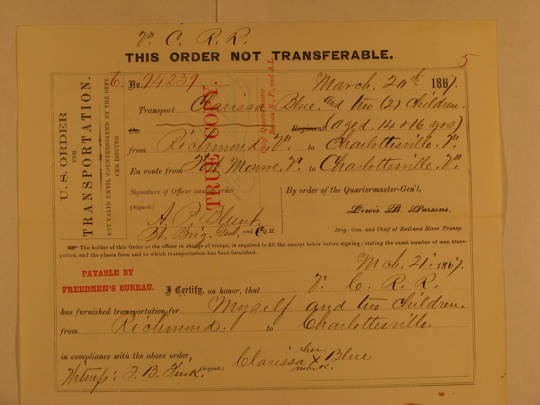 Va. C. R. R.
THIS ORDER NOT TRANSFERABLE.
5
U. S. ORDER
FOR
TRANSPORTATION.
NOT VALID UNTIL COUNTERSIGNED BY THE OFFICER ISSUING
6. No. 94239.
March 20th 1867.
Transport Clarissa Blue and two (2) Children
Regiment (aged 14 & 16 yrs)
from Richmond Va to Charlottesville, Va
En route from Fort Monroe, Va to Charlottesville, Va
Signature of Officer issuing order
By order of the Quartermaster-Gen'l,
(Signed)
Lewis B. Parsons,
Brig. Gen. and Chief of Rail and River Transp.
TRUE COPY.
The holder of this Order or the officer in charge of troops, is required to fill the receipt below before signing; stating the exact number of men transported, and the places from and to which transportation has been furnished.
Mch. 21st 1867.
PAYABLE BY
FREEDMEN'S BUREAU.
I Certify, on honor, that Va C. R. R.
has furnished transportation for Myself and two Children.
from Richmond. to Charlottesville.
in compliance with the above order,
(Signed) Clarissa her X mark Blue
Witness: